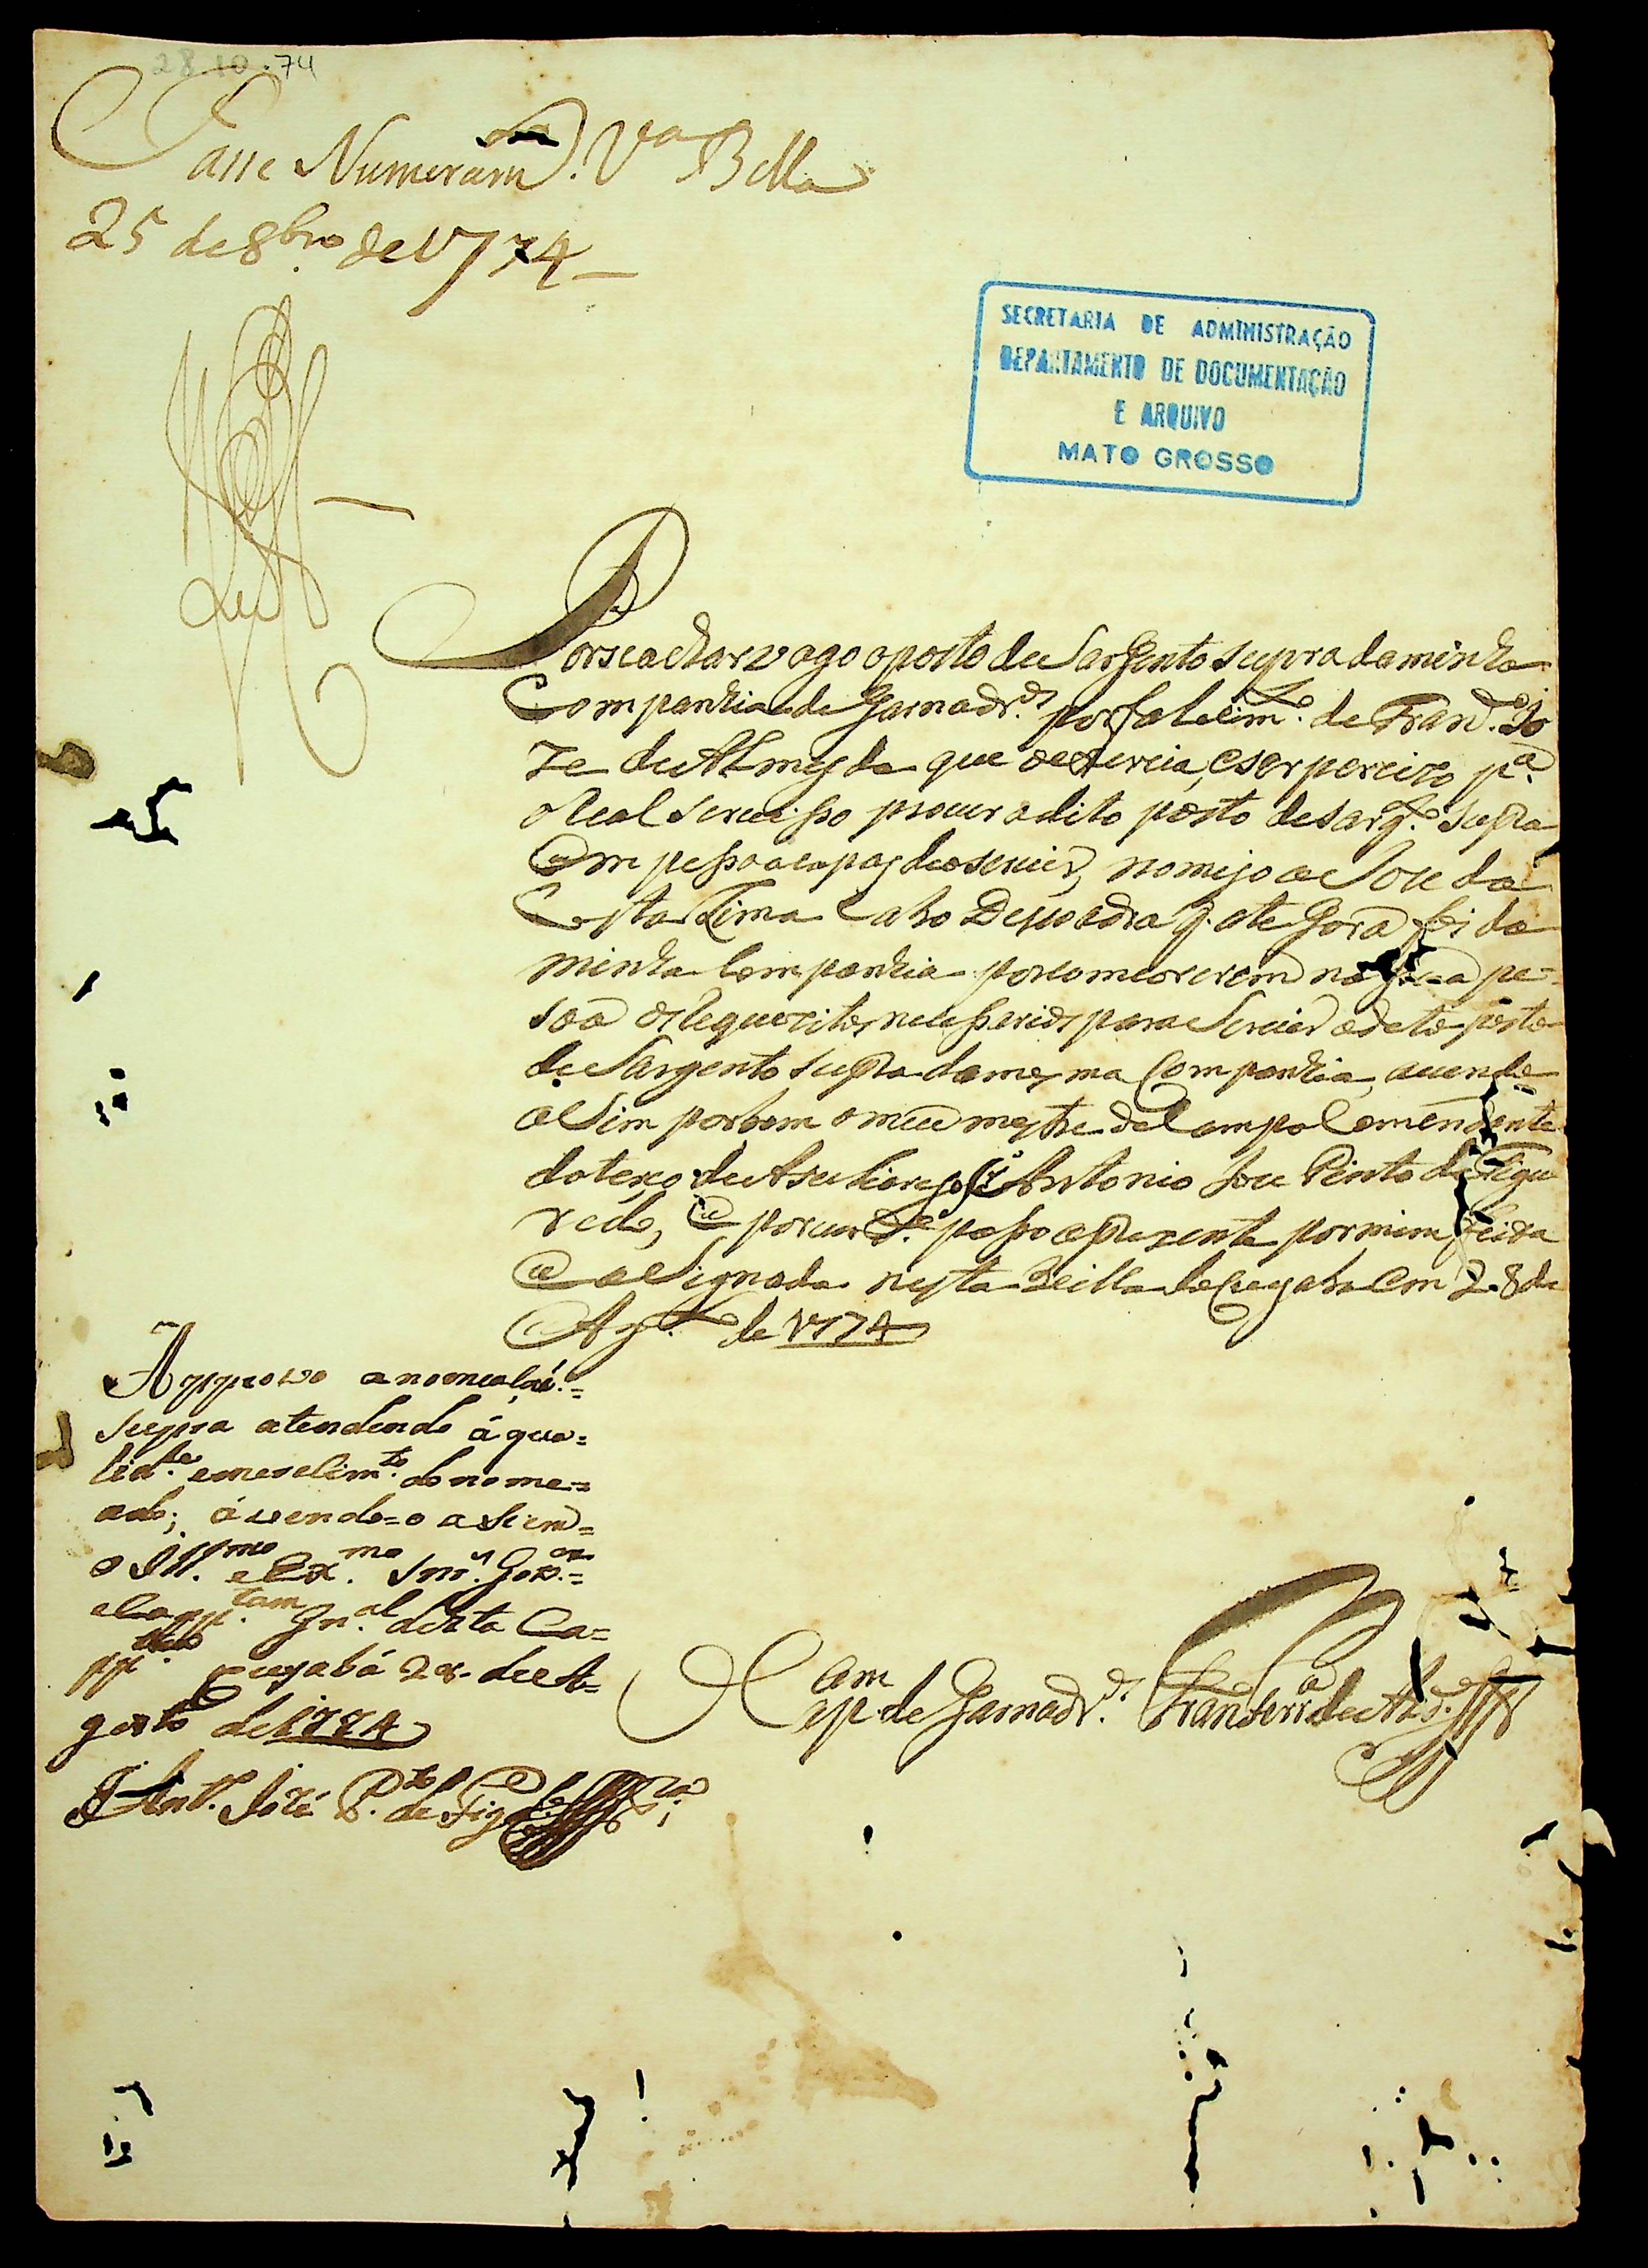 28.10.74
Passe Numeram. Va Bella
25 de 8bro de 1774
SECRETARIA DE ADMINISTRAÇÃO
DEPARTAMENTO DE DOCUMENTAÇÃO
E ARQUIVO
MATO GROSSO
Por se achar vago o posto de Sargento supra da minha
Companhia de Garnadr.os por falecim.to de Fran.co Jo
ze de Almeyda que o exercia, e ser perciso p.a
o Real serviso procur o dito posto de Sarg.to supra
em pesoa capas de o servir, nomejo a Joze da
Costa Lima Cabo Desquadra q. ate gora foi da
minha Companhia por comcorerem na pe=
soa os Requezitos necesarios para Servir o dito posto
de Sargento supra da mesma Companhia, avendo
aSim por bem o meu mestre de Campo Comendente
do terço de Antonio Joze Pinto de Figue
redo, e por cur paso a prezente por mim feita
e aSignada nesta Villa do Cuyaba em 28 de
Ag.to de 1774
Approvo a nomeaçaõ=
supra atendendo á qua=
lid.e e merecim.to do nome=
ado; ávendo=o aSim=
o Ill.mo e Ex.mo Snr. Gov.or=
e Capp.tam Gn.al desta Ca=
pp.nia Cuyabá 28 de A=
gosto de 1774
Ant.o José P.to de Fig.do
Cap.am de Garnadr.os Fran